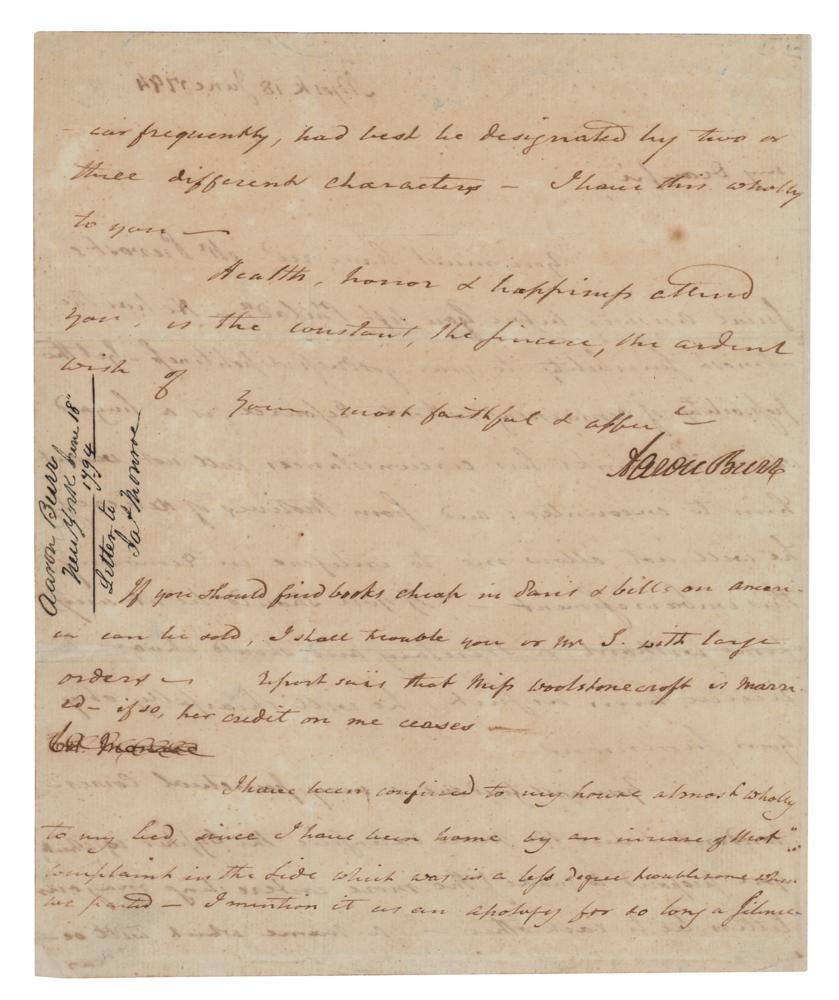 -cur frequently, had best be designated by two or
three different characters - I leave this wholly
to you —
Health, honor & happiness attend
you, is the constant, the sincere, the ardent
wish of
Your most faithful & affec
Aaron Burr
Aaron Burr
New York June 18"
1794
Letter to
Jas Monroe
If you should find books cheap in Paris & bills on Ameri-
ca can be sold, I shall trouble you or Mr S. with large
orders — Report says that Miss Woolstonecroft is marri-
ed - if so, her credit on me ceases —
I have been confined to my house almost wholly
to my bed since I have been home by an increase of that
complaint in the side which was in a less degree troublesome when
we parted - I mention it as an apology for so long a silence